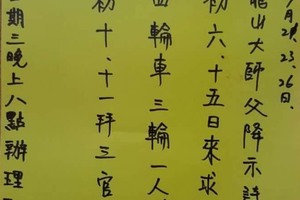 月21.23.26日.
山大師父降示詩
初六、十五日來求
四輪車三輪一人
初十、十一拜三官
期三晚上八點辦理